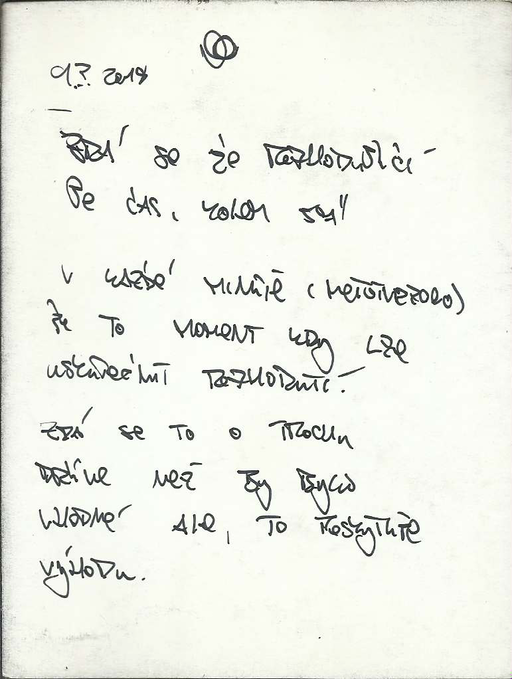 9.?. 2019
ZDÁ se že ROZHODUJÍCÍ
Je ČAS, KOLEM
V KAŽDÉ MINUTĚ (METONEZORO)
Je TO MOMENT KDY LZE
USKUTEČNIT ROZHODNUTÍ.
ZDÁ se TO O TROCHU
DŘÍVE NEŽ BY BYLO
VHODNÉ ALE, TO POSKYTUJE
VÝHODU.